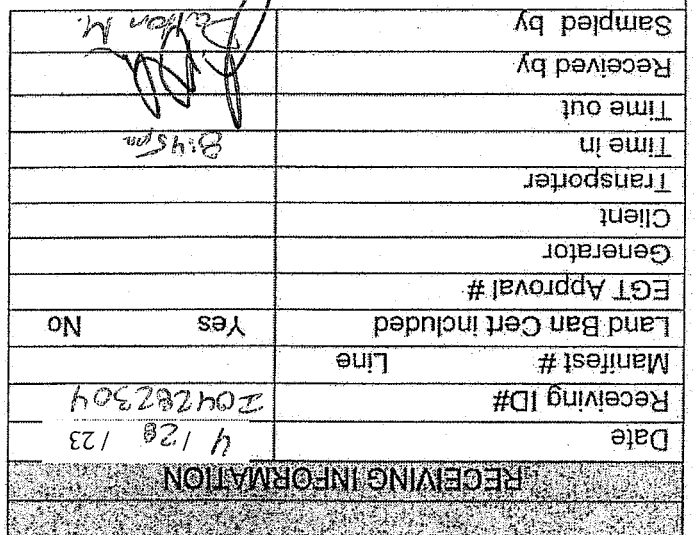 RECEIVING INFORMATION
Date 4 / 28 / 23
Receiving ID# I04282304
Manifest # Line
Land Ban Cert included Yes No
EGT Approval #
Generator
Client
Transporter
Time in 8:45pm
Time out
Received by
Sampled by Dalton M.